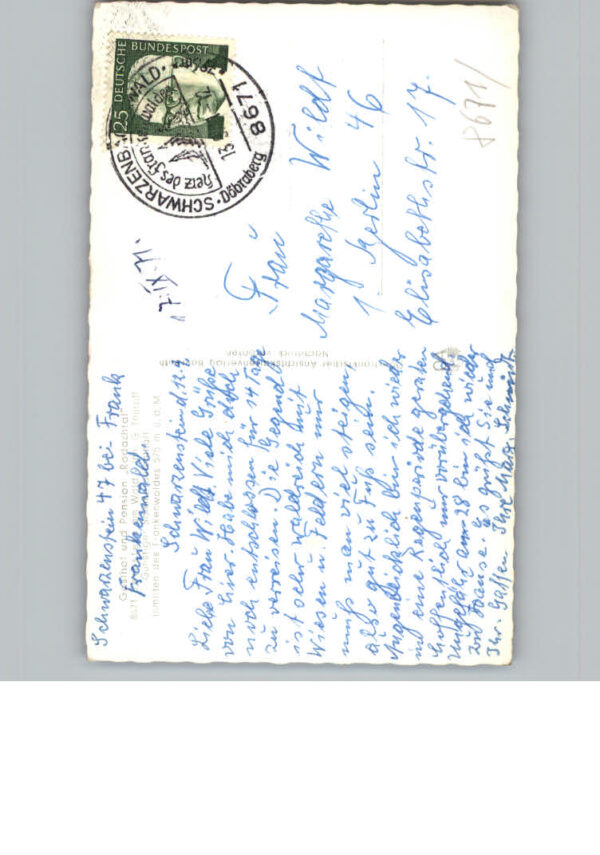 Schwarzenstein 47 bei Frank
Frankenwald
Gasthof und Pension „Rodachtal"
inmitten des Frankenwaldes 575 m ü. d. M.
Schwarzenstein d. 13.9
Liebe Frau Wildt. Viele Grüße
von hier. Habe mich doch
noch entschlossen für 14 Tage
zu verreisen. Die Gegend
ist sehr waldreich mit
Wiesen u. Feldern nur
muß man viel steigen
also gut zu Fuß sein.
Augenblicklich bin ich wieder
in eine Regenperiode geraten
hoffentlich nur vorübergehend
Ungefähr am 28 bin ich wieder
zu Hause. Es grüßt Sie und
Ihr. Gatten Ihre Marg. Schmidt
Fränkischer Ansichtskartenverlag
Nachdruck verboten
17.IX.71.
DEUTSCHE BUNDESPOST
25
8671 SCHWARZENBACH WALD
Herz des Frankenwaldes
Döbraberg
Frau
Margarethe Wildt
1 Berlin 46
Elisabethstr. 17.
8671/